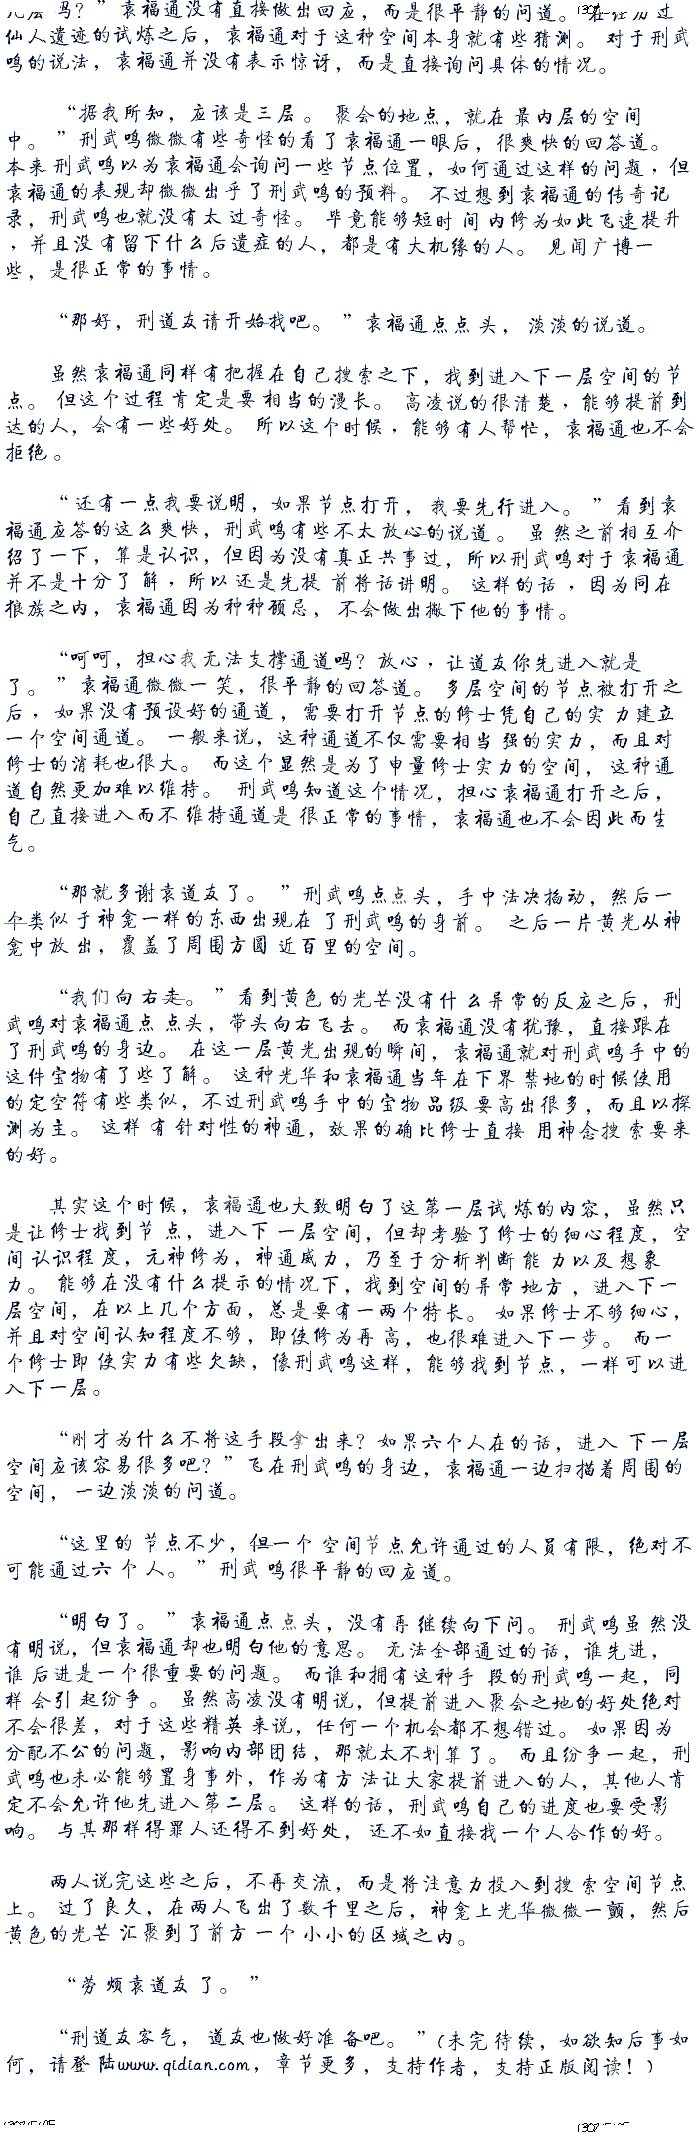 几层吗？”袁福通没有直接做出回应，而是很平静的问道。 在经历过
仙人遗迹的试炼之后，袁福通对于这种空间本身就有些猜测。 对于刑武
鸣的说法，袁福通并没有表示惊讶，而是直接询问具体的情况。
“据我所知，应该是三层。 聚会的地点，就在最内层的空间
中。”刑武鸣微微有些奇怪的看了袁福通一眼后，很爽快的回答道。
本来刑武鸣以为袁福通会询问一些节点位置，如何通过这样的问题，但
袁福通的表现却微微出乎了刑武鸣的预料。 不过想到袁福通的传奇记
录，刑武鸣也就没有太过奇怪。 毕竟能够短时间内修为如此飞速提升
，并且没有留下什么后遗症的人，都是有大机缘的人。 见闻广博一
些，是很正常的事情。
“那好，刑道友请开始我吧。 ”袁福通点点头，淡淡的说道。
虽然袁福通同样有把握在自己搜索之下，找到进入下一层空间的节
点。 但这个过程肯定是要相当的漫长。 高凌说的很清楚，能够提前到
达的人，会有一些好处。 所以这个时候，能够有人帮忙，袁福通也不会
拒绝。
“还有一点我要说明，如果节点打开，我要先行进入。 ”看到袁
福通应答的这么爽快，刑武鸣有些不太放心的说道。 虽然之前相互介
绍了一下，算是认识，但因为没有真正共事过，所以刑武鸣对于袁福通
并不是十分了解，所以还是先提前将话讲明。 这样的话，因为同在
狼族之内，袁福通因为种种顾忌，不会做出撇下他的事情。
“呵呵，担心我无法支撑通道吗？放心，让道友你先进入就是
了。 ”袁福通微微一笑，很平静的回答道。 多层空间的节点被打开之
后，如果没有预设好的通道，需要打开节点的修士凭自己的实力建立
一个空间通道。 一般来说，这种通道不仅需要相当强的实力，而且对
修士的消耗也很大。 而这个显然是为了申量修士实力的空间，这种通
道自然更加难以维持。 刑武鸣知道这个情况，担心袁福通打开之后，
自己直接进入而不维持通道是很正常的事情，袁福通也不会因此而生
气。
“那就多谢袁道友了。 ”刑武鸣点点头，手中法决掐动，然后一
个类似于神龛一样的东西出现在了刑武鸣的身前。 之后一片黄光从神
龛中放出，覆盖了周围方圆近百里的空间。
“我们向右走。 ”看到黄色的光芒没有什么异常的反应之后，刑
武鸣对袁福通点点头，带头向右飞去。 而袁福通没有犹豫，直接跟在
了刑武鸣的身边。 在这一层黄光出现的瞬间，袁福通就对刑武鸣手中的
这件宝物有了些了解。 这种光华和袁福通当年在下界禁地的时候使用
的定空符有些类似，不过刑武鸣手中的宝物品级要高出很多，而且以探
测为主。 这样有针对性的神通，效果的确比修士直接用神念搜索要来
的好。
其实这个时候，袁福通也大致明白了这第一层试炼的内容，虽然只
是让修士找到节点，进入下一层空间，但却考验了修士的细心程度，空
间认识程度，元神修为，神通威力，乃至于分析判断能力以及想象
力。 能够在没有什么提示的情况下，找到空间的异常地方，进入下一
层空间，在以上几个方面，总是要有一两个特长。 如果修士不够细心，
并且对空间认知程度不够，即使修为再高，也很难进入下一步。 而一
个修士即使实力有些欠缺，像刑武鸣这样，能够找到节点，一样可以进
入下一层。
“刚才为什么不将这手段拿出来？如果六个人在的话，进入下一层
空间应该容易很多吧？”飞在刑武鸣的身边，袁福通一边扫描着周围的
空间，一边淡淡的问道。
“这里的节点不少，但一个空间节点允许通过的人员有限，绝对不
可能通过六个人。 ”刑武鸣很平静的回应道。
“明白了。 ”袁福通点点头，没有再继续向下问。 刑武鸣虽然没
有明说，但袁福通却也明白他的意思。 无法全部通过的话，谁先进，
谁后进是一个很重要的问题。 而谁和拥有这种手段的刑武鸣一起，同
样会引起纷争。 虽然高凌没有明说，但提前进入聚会之地的好处绝对
不会很差，对于这些精英来说，任何一个机会都不想错过。 如果因为
分配不公的问题，影响内部团结，那就太不划算了。 而且纷争一起，刑
武鸣也未必能够置身事外，作为有方法让大家提前进入的人，其他人肯
定不会允许他先进入第二层。 这样的话，刑武鸣自己的进度也要受影
响。 与其那样得罪人还得不到好处，还不如直接找一个人合作的好。
两人说完这些之后，不再交流，而是将注意力投入到搜索空间节点
上。 过了良久，在两人飞出了数千里之后，神龛上光华微微一颤，然后
黄色的光芒汇聚到了前方一个小小的区域之内。
“劳烦袁道友了。 ”
“刑道友客气，道友也做好准备吧。 ”(未完待续，如欲知后事如
何，请登陆www.qidian.com，章节更多，支持作者，支持正版阅读！)